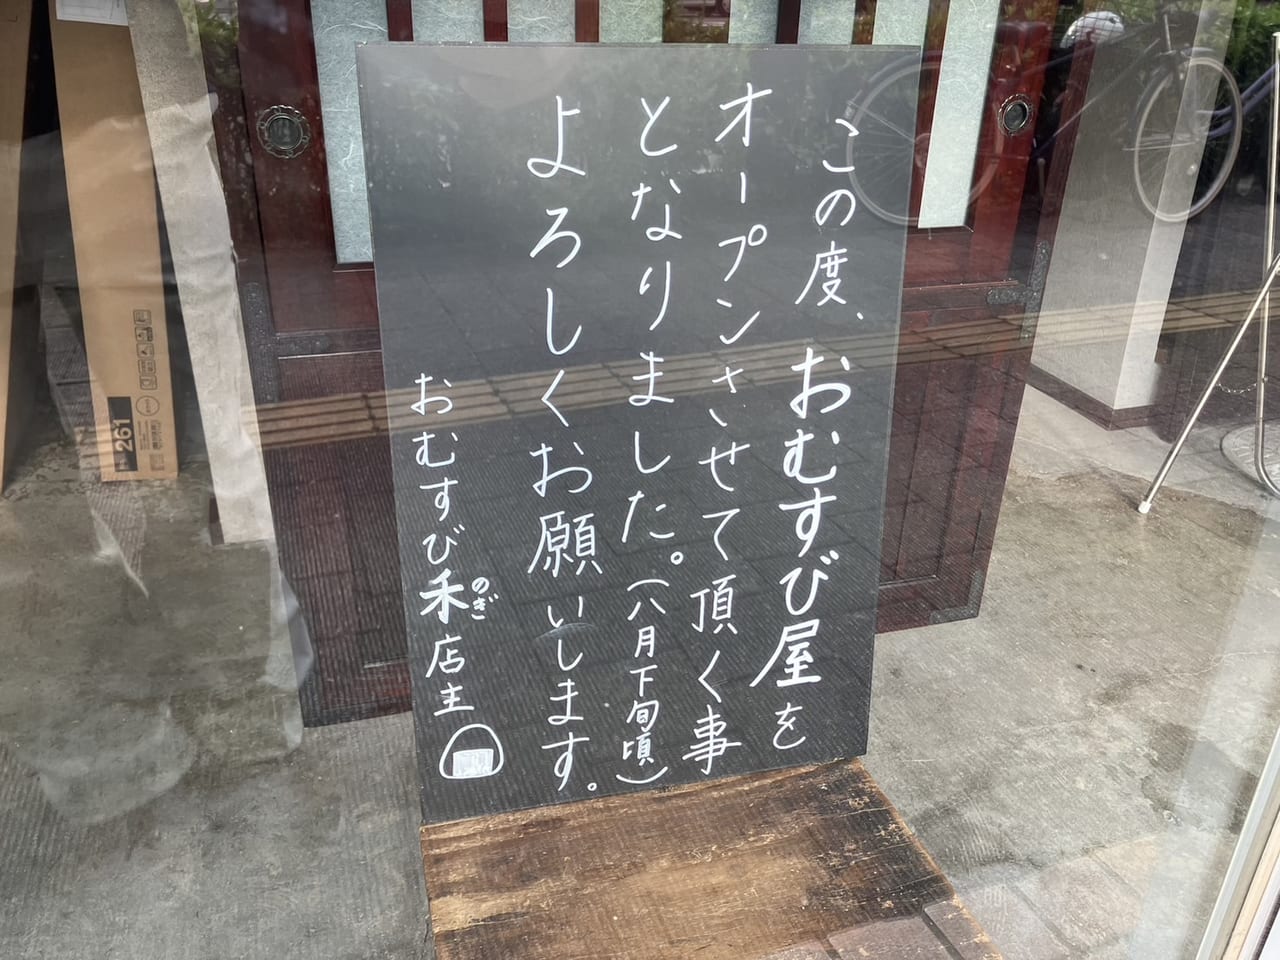 この度、おむすび屋を
オープンさせて頂く事
となりました。(八月下旬頃)
よろしくお願いします。
おむすび禾店主
のぎ
261